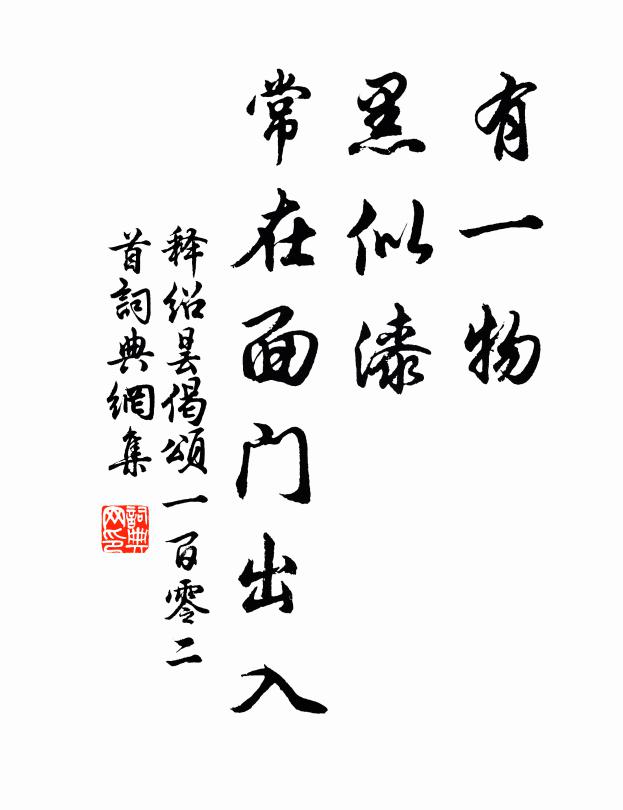 有一物
黑似漆
常在面门出入
释绍昙偈頌一百零二
首詞典網集
詞典
网印